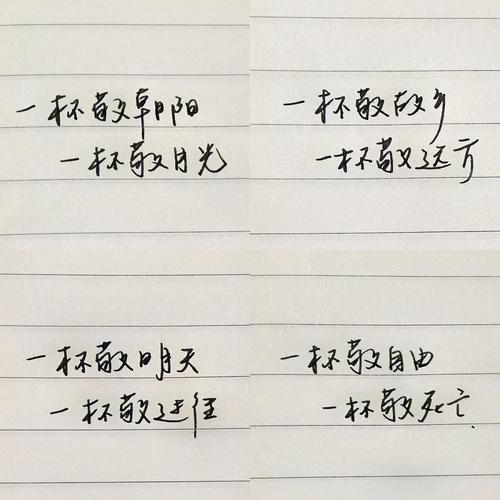 一杯敬朝阳
一杯敬月光
一杯敬故乡
一杯敬远方
一杯敬明天
一杯敬过往
一杯敬自由
一杯敬死亡